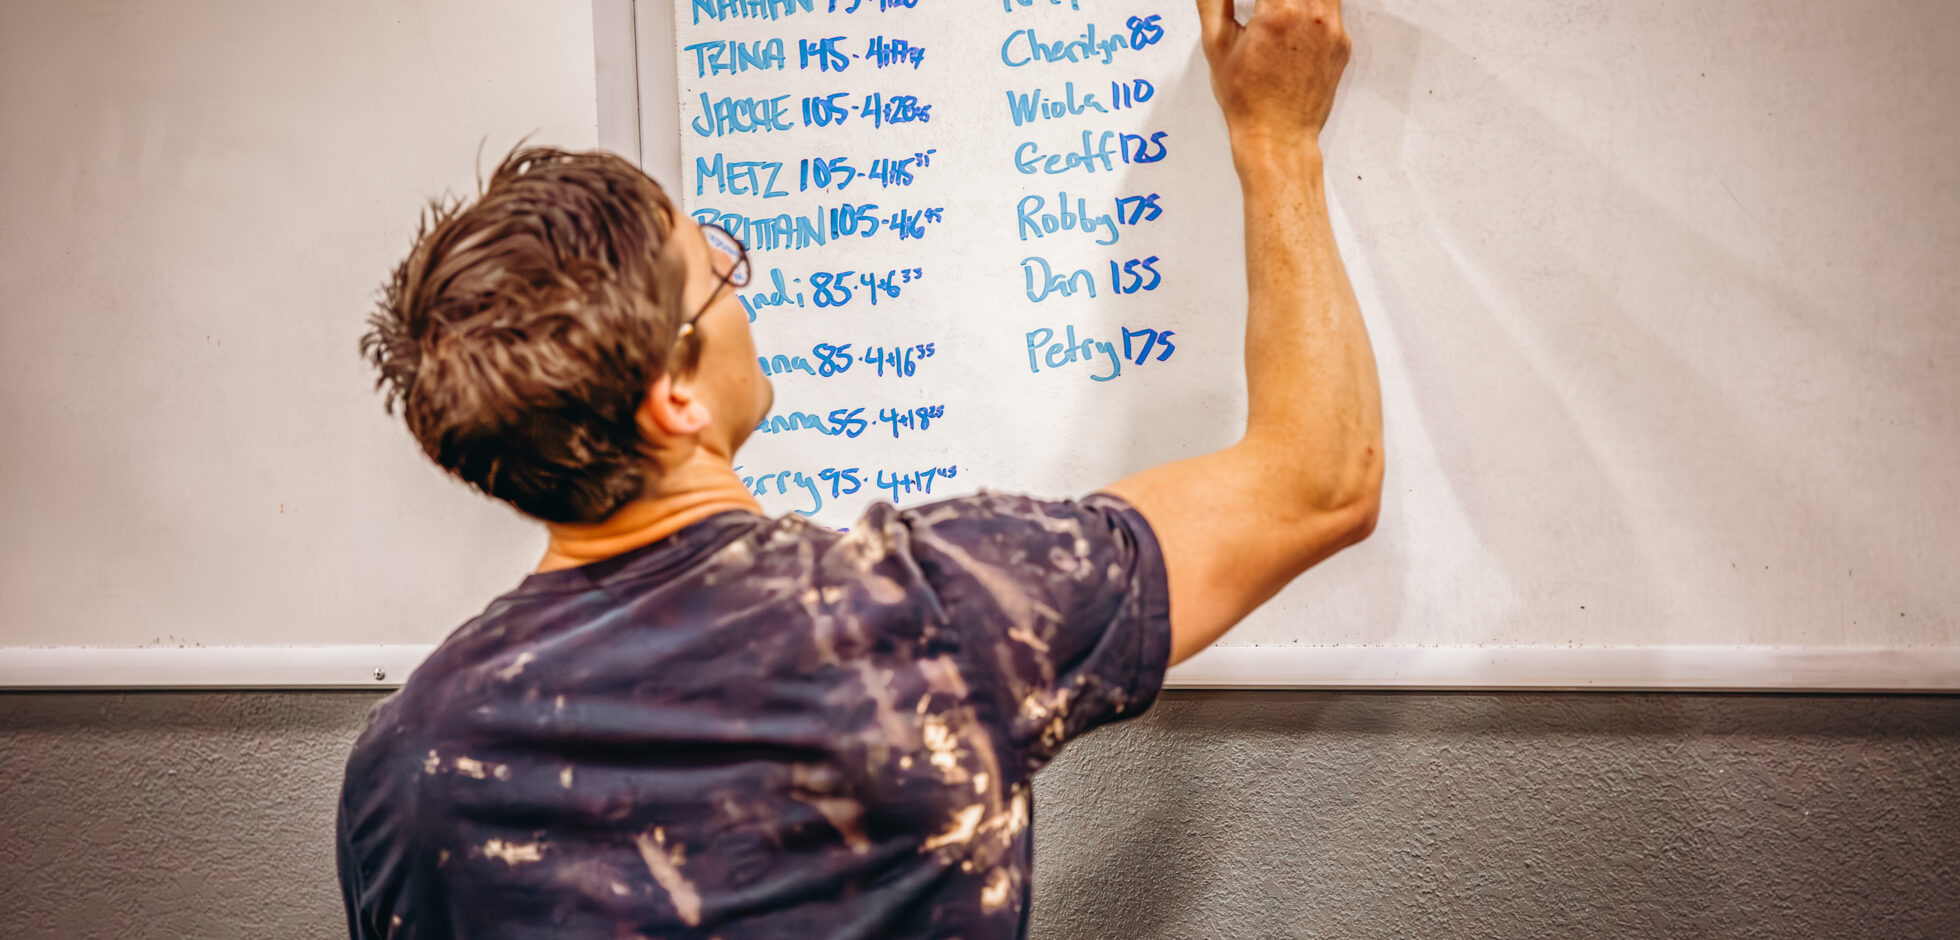 TRINA 145-4
JACKIE 105-4+28
METZ 105-4+15 35
BRITTAIN 105-4+6 45
85-4+6 33
85-4+16 35
55-4+18 25
95-4+17 45
Cherilyn 85
Wiola 110
Geoff 125
Robby 175
Dan 155
Petry 175